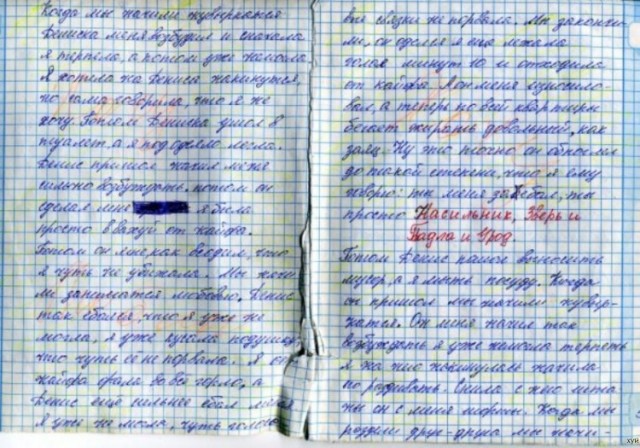 Когда мы начали кувыркаться
Дениска меня возбудил и сначала
я терпела, а потом уже не могла.
Я хотела на Дениса накинутся,
но сама говорила, что я не
хочу. Потом Дениска ушел в
туалет, а я под одеяло легла.
Денис пришел, начал меня
сильно возбуждать, потом он
сделал мне я была
просто в от кайфа.
Потом он мне как вводил, что
я чуть не Мы начи-
ли заниматся любовью. Денис
так ебался, что я уже не
могла, я уже кусала подушку
что чуть ее не порвала. Я от
кайфа орала во все горло, а
Денис еще сильнее ебал меня
я уже не могла, чуть голосо-
вые связки не порвала. Мы закончи-
ли, он оделся я еще лежала
голая минут 10 и отходила
от кайфа. А он меня изнасило-
вал, а теперь по всей квартире
бегает довольный, как
заяц. Ну это точно он
до такой степени, что я ему
говорю: ты меня заебал, ты
просто Насильник, Зверь и
Падла и Урод
Потом Денис пошел выносить
мусор, а я мыть посуду. Когда
он пришел мы начали кувыр-
катся. Он меня начал так
возбуждать я уже не могла терпеть
я на него накинулась начала
по раздивать. Сняла с него штаны
ны он с меня шорты. Когда мы
роздели друг-друга мы начи-